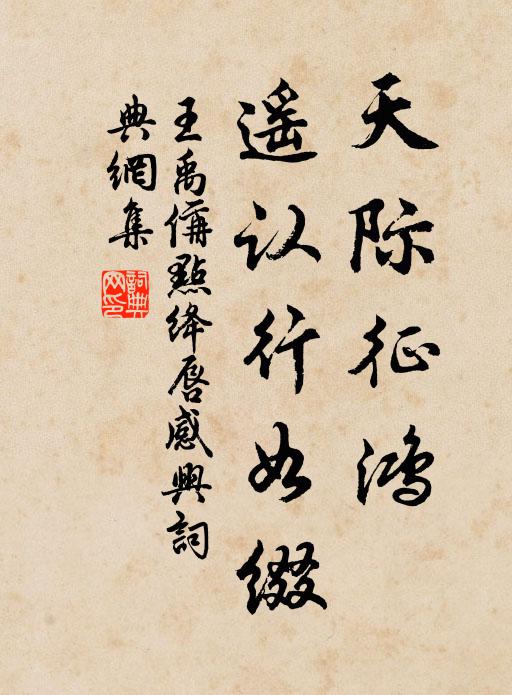 天际征鸿
遥认行如缀
王禹偁點绛唇感興詞
典網集
詞典网印